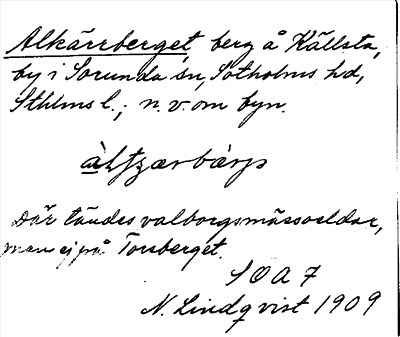 Alkärrberget, berg å Källsta,
by i Sorunda sn, Sotholms hd,
Sthlms l.; n.v. om byn.
Där tändes valborgsmässoeldar,
men ej på Torsberget.
SOA 7
N. Lindqvist 1909